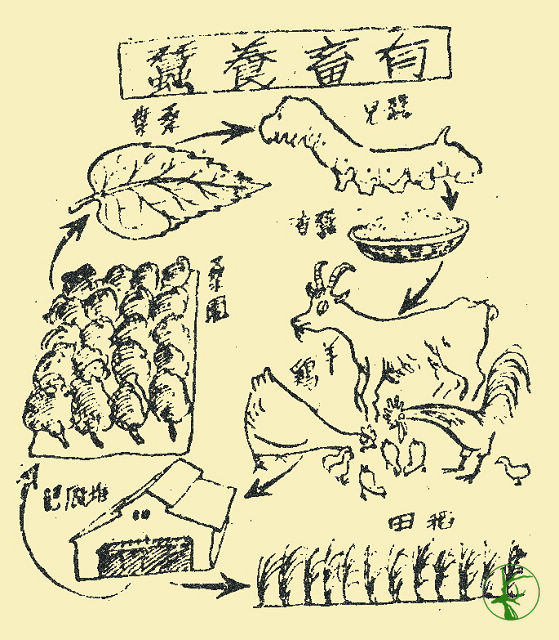 有畜養蠶
桑葉
蠶兒
蠶
桑園
羊
鶏
堆厩肥
稻田